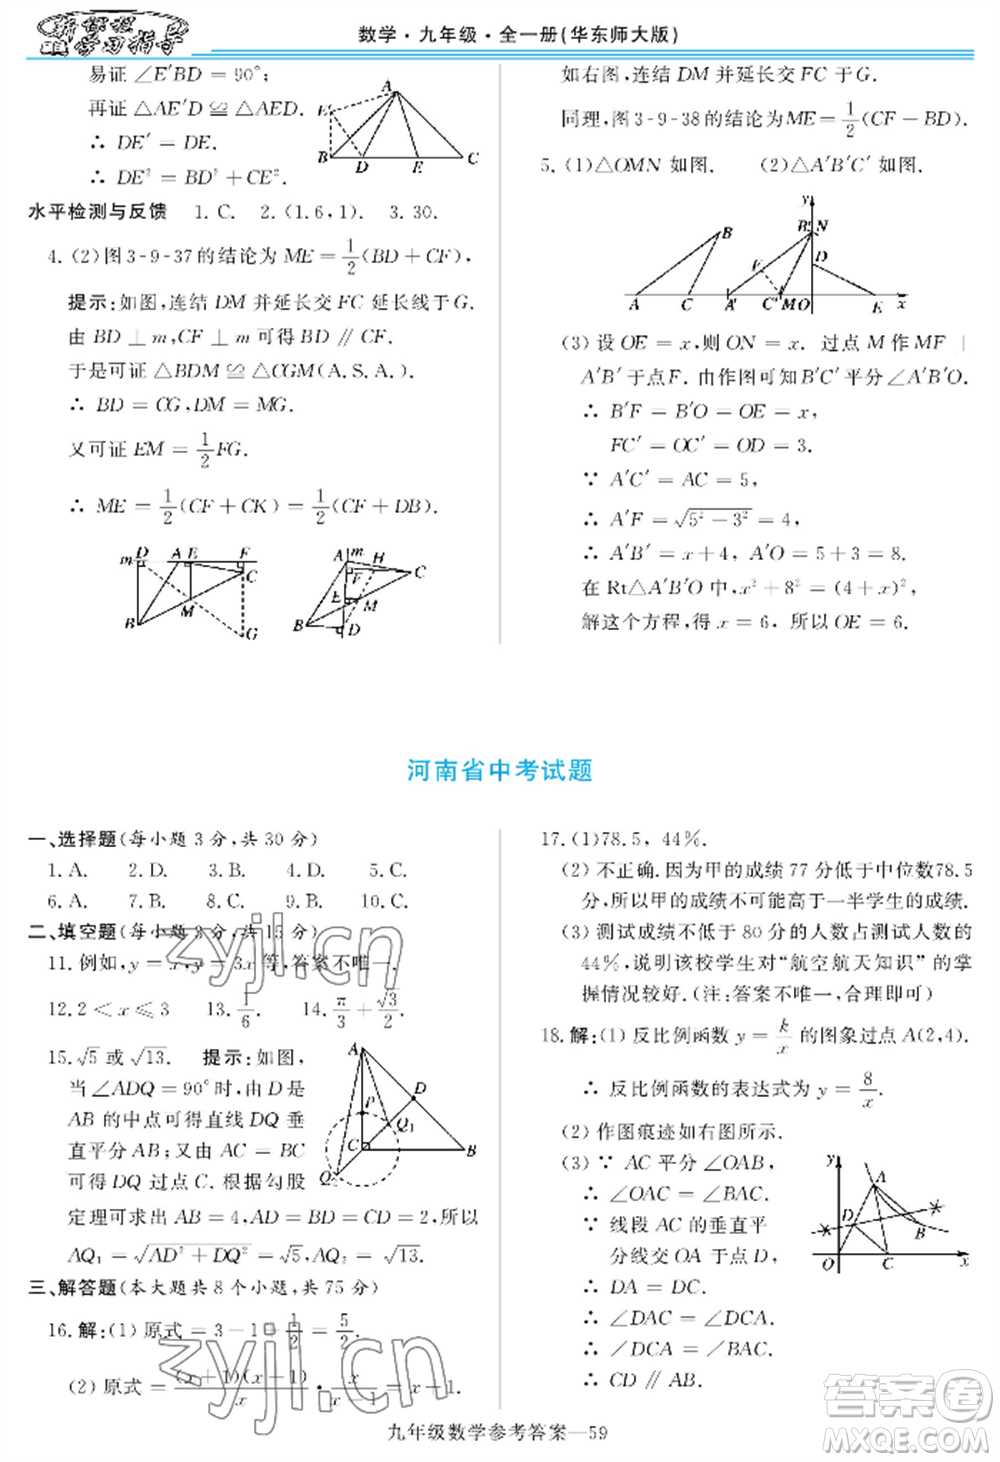 新课程
学习指导
数学·九年级·全一册(华东师大版)
易证 ∠E′BD = 90°;
再证 △AE′D ≌ △AED.
∴ DE′ = DE.
∴ DE² = BD² + CE².
A
E′
B
D
E
C
水平检测与反馈 1. C. 2. (1.6,1). 3. 30.
4. (2) 图 3-9-37 的结论为 ME = 1/2(BD + CF),
提示:如图,连结 DM 并延长交 FC 延长线于 G.
由 BD ⊥ m,CF ⊥ m 可得 BD ∥ CF.
于是可证 △BDM ≌ △CGM(A.S.A.).
∴ BD = CG,DM = MG.
又可证 EM = 1/2 FG.
∴ ME = 1/2(CF + CK) = 1/2(CF + DB).
m D A E F
C
M
B
G
A m
H
F C
E
M
B
D
如右图,连结 DM 并延长交 FC 于 G.
同理,图 3-9-38 的结论为 ME = 1/2(CF − BD).
5. (1) △OMN 如图. (2) △A′B′C′ 如图.
y
B
B′ N
F
D
A
C
A′
C′ M O
E
x
(3) 设 OE = x,则 ON = x. 过点 M 作 MF ⊥
A′B′ 于点 F. 由作图可知 B′C′ 平分 ∠A′B′O.
∴ B′F = B′O = OE = x,
FC′ = OC′ = OD = 3.
∵ A′C′ = AC = 5,
∴ A′F = √(5² − 3²) = 4,
∴ A′B′ = x + 4, A′O = 5 + 3 = 8.
在 Rt△A′B′O 中,x² + 8² = (4 + x)²,
解这个方程,得 x = 6, 所以 OE = 6.
河南省中考试题
一、选择题(每小题 3 分,共 30 分)
1. A. 2. D. 3. B. 4. D. 5. C.
6. A. 7. B. 8. C. 9. B. 10. C.
二、填空题(每小题 3 分,共 15 分)
11. 例如,y = x,y = 3x 等,答案不唯一.
12. 2 < x ⩽ 3 13. 1/6 14. π/3 + √3/2
15. √5 或 √13. 提示:如图,
当 ∠ADQ = 90° 时,由 D 是
AB 的中点可得直线 DQ 垂
直平分 AB;又由 AC = BC
可得 DQ 过点 C. 根据勾股
定理可求出 AB = 4,AD = BD = CD = 2,所以
AQ₁ = √(AD² + DQ²) = √5,AQ₂ = √13.
A
D
P
Q₁
C
B
Q₂
三、解答题(本大题共 8 个小题,共 75 分)
16. 解:(1) 原式 = 3 − 1 + 1/2 = 5/2.
(2) 原式 = (x + 1)(x − 1)/x · x/(x + 1) = x − 1.
17. (1) 78.5, 44%.
(2) 不正确. 因为甲的成绩 77 分低于中位数 78.5
分,所以甲的成绩不可能高于一半学生的成绩.
(3) 测试成绩不低于 80 分的人数占测试人数的
44%,说明该校学生对“航空航天知识”的掌
握情况较好.(注:答案不唯一,合理即可)
18. 解:(1) 反比例函数 y = k/x 的图象过点 A(2,4).
∴ 反比例函数的表达式为 y = 8/x.
(2) 作图痕迹如右图所示.
(3) ∵ AC 平分 ∠OAB,
∴ ∠OAC = ∠BAC.
∵ 线段 AC 的垂直平
分线交 OA 于点 D,
∴ DA = DC.
∴ ∠DAC = ∠DCA.
∴ ∠DCA = ∠BAC.
∴ CD ∥ AB.
y
A
D
B
O
C
x
zyjl.cn
zyjl.cn
答案卷
MXQE.COM
九年级数学参考答案—59